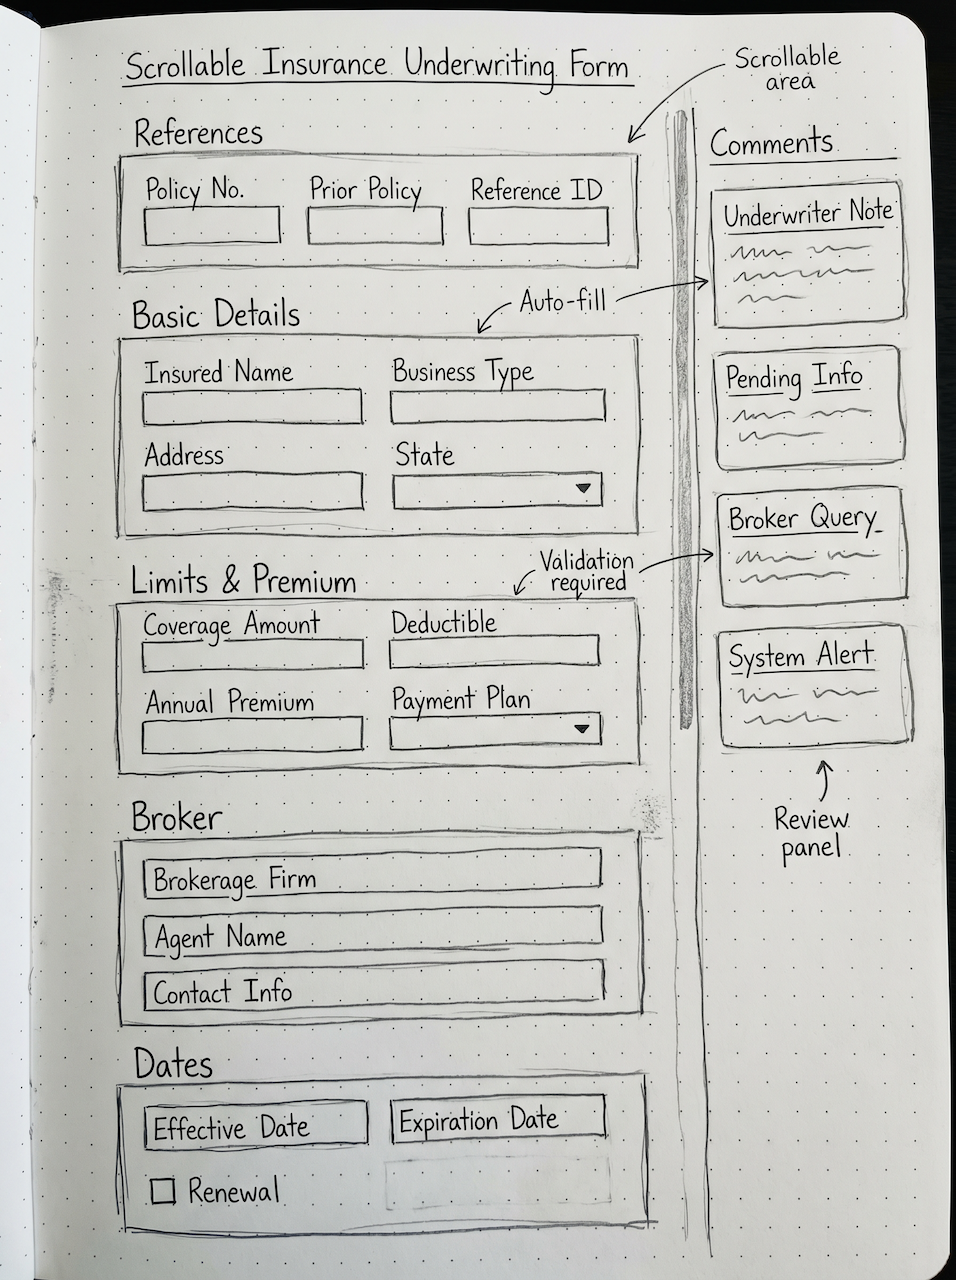 Scrollable Insurance Underwriting Form
Scrollable
area
References
Policy No.
Prior Policy
Reference ID
Auto-fill
Basic Details
Insured Name
Business Type
Address
State
Validation
required
Limits & Premium
Coverage Amount
Deductible
Annual Premium
Payment Plan
Broker
Brokerage Firm
Agent Name
Contact Info
Dates
Effective Date
Expiration Date
Renewal
Comments
Underwriter Note
Pending Info
Broker Query
System Alert
Review
panel